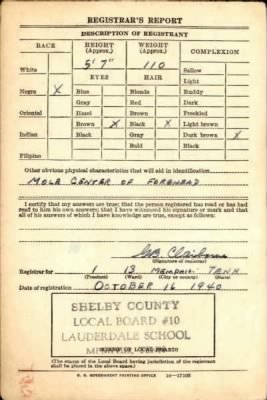 REGISTRAR'S REPORT
DESCRIPTION OF REGISTRANT
RACE HEIGHT (Approx.) WEIGHT (Approx.) COMPLEXION
5' 7" 110
White EYES HAIR Sallow
Light
Negro X Blue Blonde Ruddy
Gray Red Dark
Oriental Hazel Brown Freckled
Brown X Black X Light brown
Indian Black Gray Dark brown X
Bald Black
Filipino
Other obvious physical characteristics that will aid in identification
MOLE CENTER OF FOREHEAD
I certify that my answers are true; that the person registered has read or has
read to him his own answers; that I have witnessed his signature or mark and that
all of his answers of which I have knowledge are true, except as follows:
(Signature of registrar)
Registrar for 1 13 MEMPHIS TENN
(Precinct) (Ward) (City or county) (State)
Date of registration OCTOBER 16 1940
SHELBY COUNTY
LOCAL BOARD #10
LAUDERDALE SCHOOL
MEMPHIS, TENN.
(STAMP OF LOCAL BOARD)
(The stamp of the Local Board having jurisdiction of the registrant
shall be placed in the above space.)
U. S. GOVERNMENT PRINTING OFFICE 16—17105